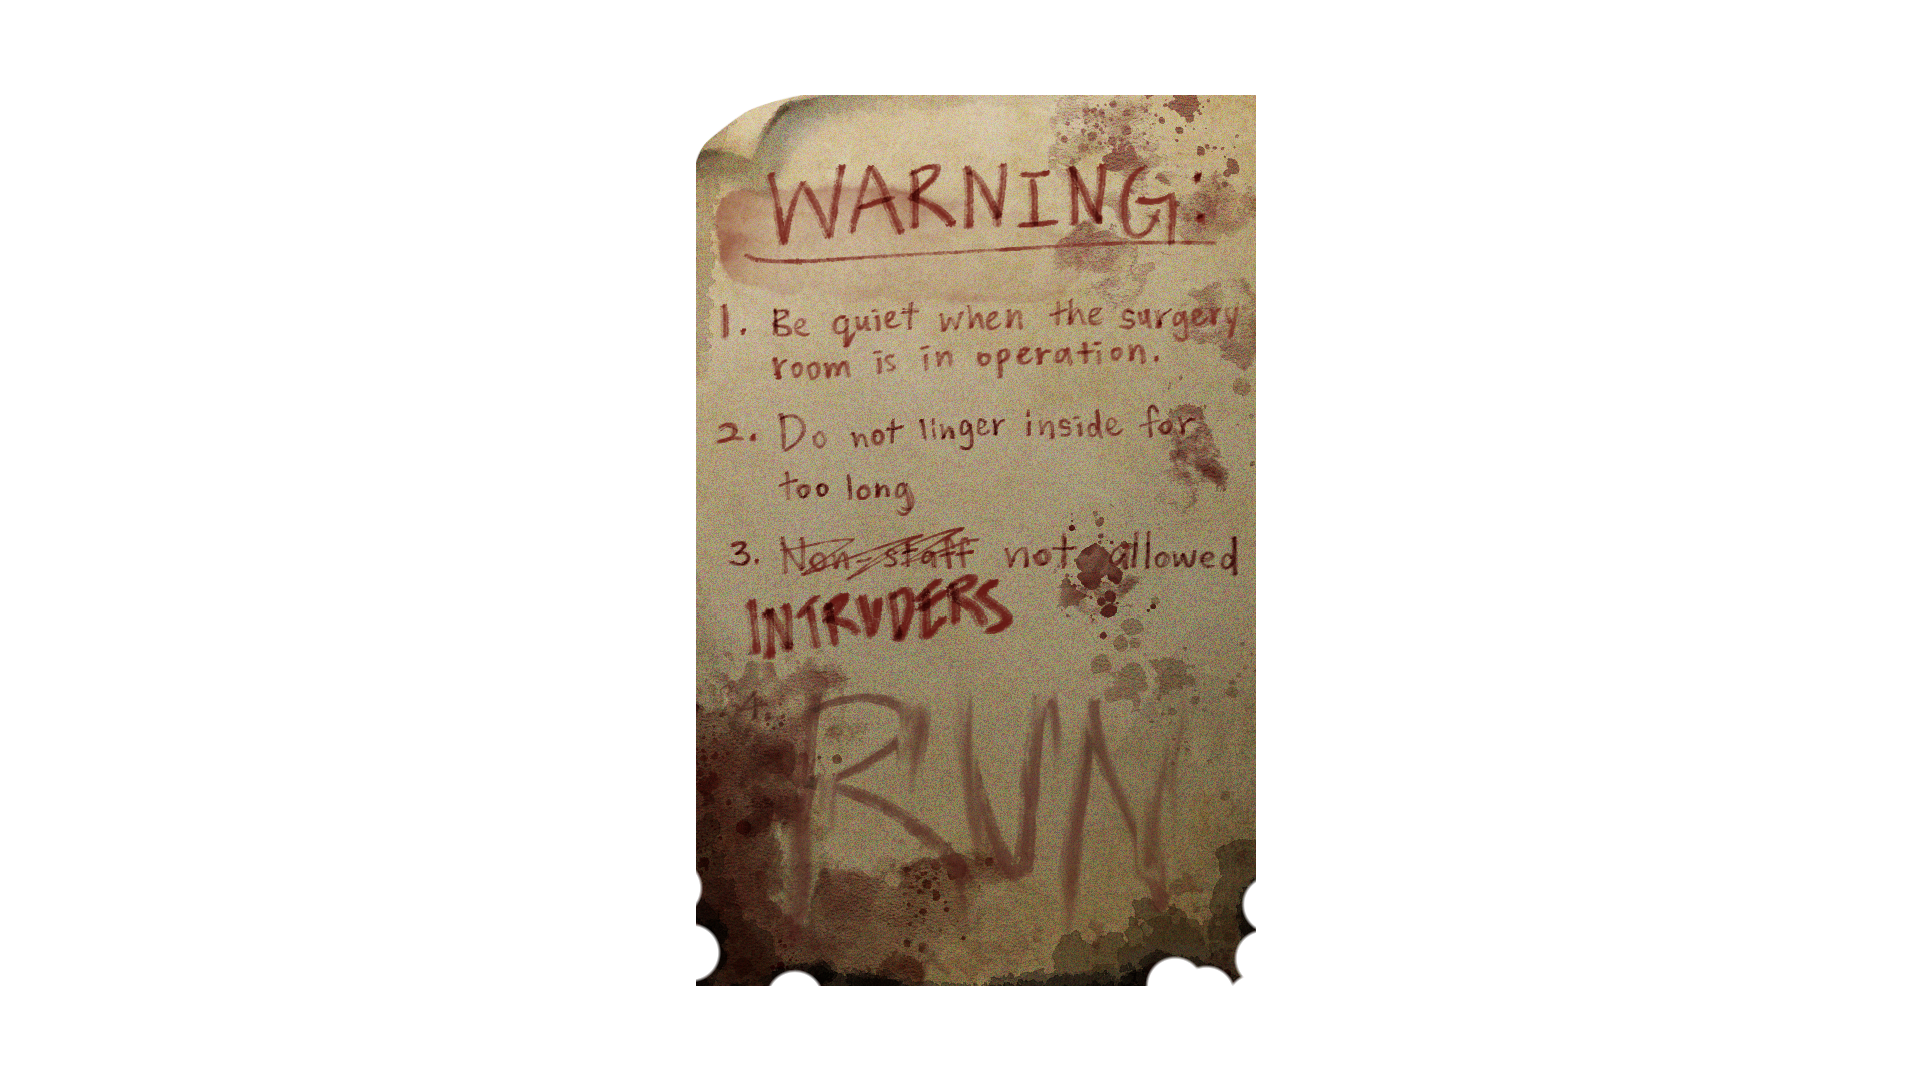 WARNING:
1. Be quiet when the surgery
room is in operation.
2. Do not linger inside for
too long
3. Non-staff not allowed
INTRUDERS
4.
RUN